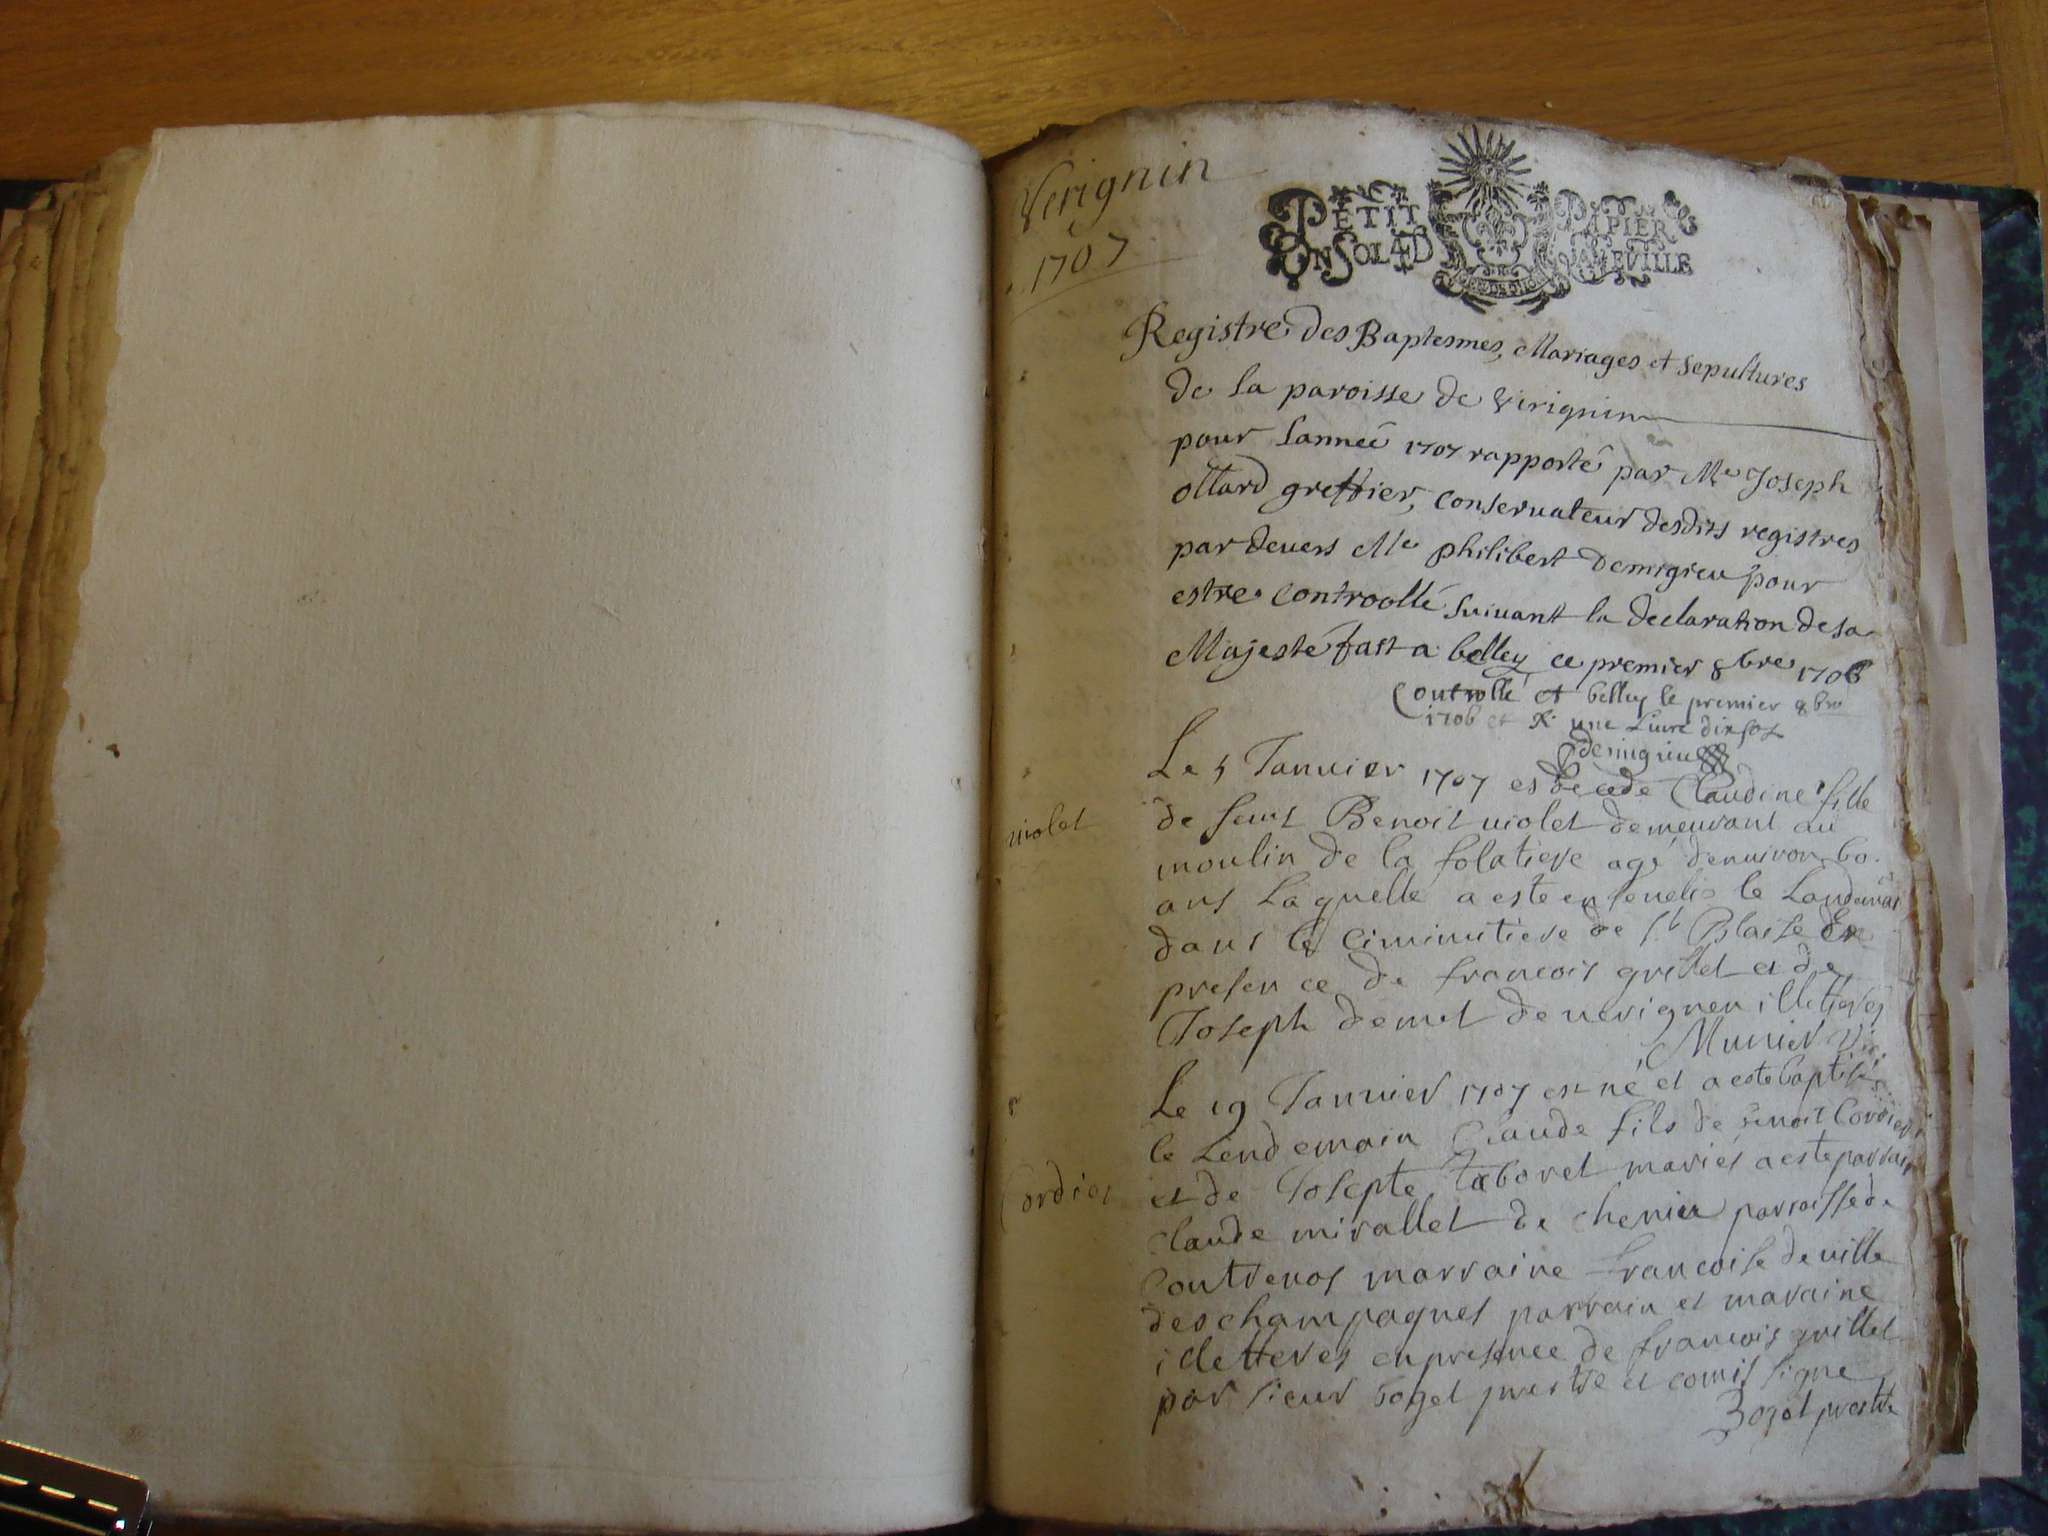 Verignin
1707
PETIT PAPIER
UN SOL 4D LA FEUILLE
Registre des Baptesmes, Mariages et sepultures
de la paroisse de Virignin
pour lanneé 1707 rapporté par Me Joseph
ottard greffier, conservateur desdits registres
par devers Me philibert Demigieu pour
estre controollé suivant la declaration de sa
Majesté fait a belley ce premier 8bre 1706
Controllé et belley le premier 8bre
1706 et R. une Livre dix sols
demigieu
Le 5 Janvier 1707 est decede Claudine fille
violet
de feut Benoit violet demeurant au
moulin de la folatiere agé denuiron 60.
ans Laquelle a este ensevelie le Landemain
dans le Ciminitiere de St Blaise En
presence de francois grillet et de
Joseph demet de verignen illetteres
Munier vic
Le 19 Janvier 1707 est né et a este baptisé
le Lendemain Claude fils de benoit Cordier
Cordier
et de Josepte taboret mariés a este parrain
Claude mirallet de chemieu parroisse de
Contrevos marraine francoise deville
des champagnes parrain et maraine
iletteres en presence de francois grillet
par sieur bozel prestre et comis signe
Bozel prestre